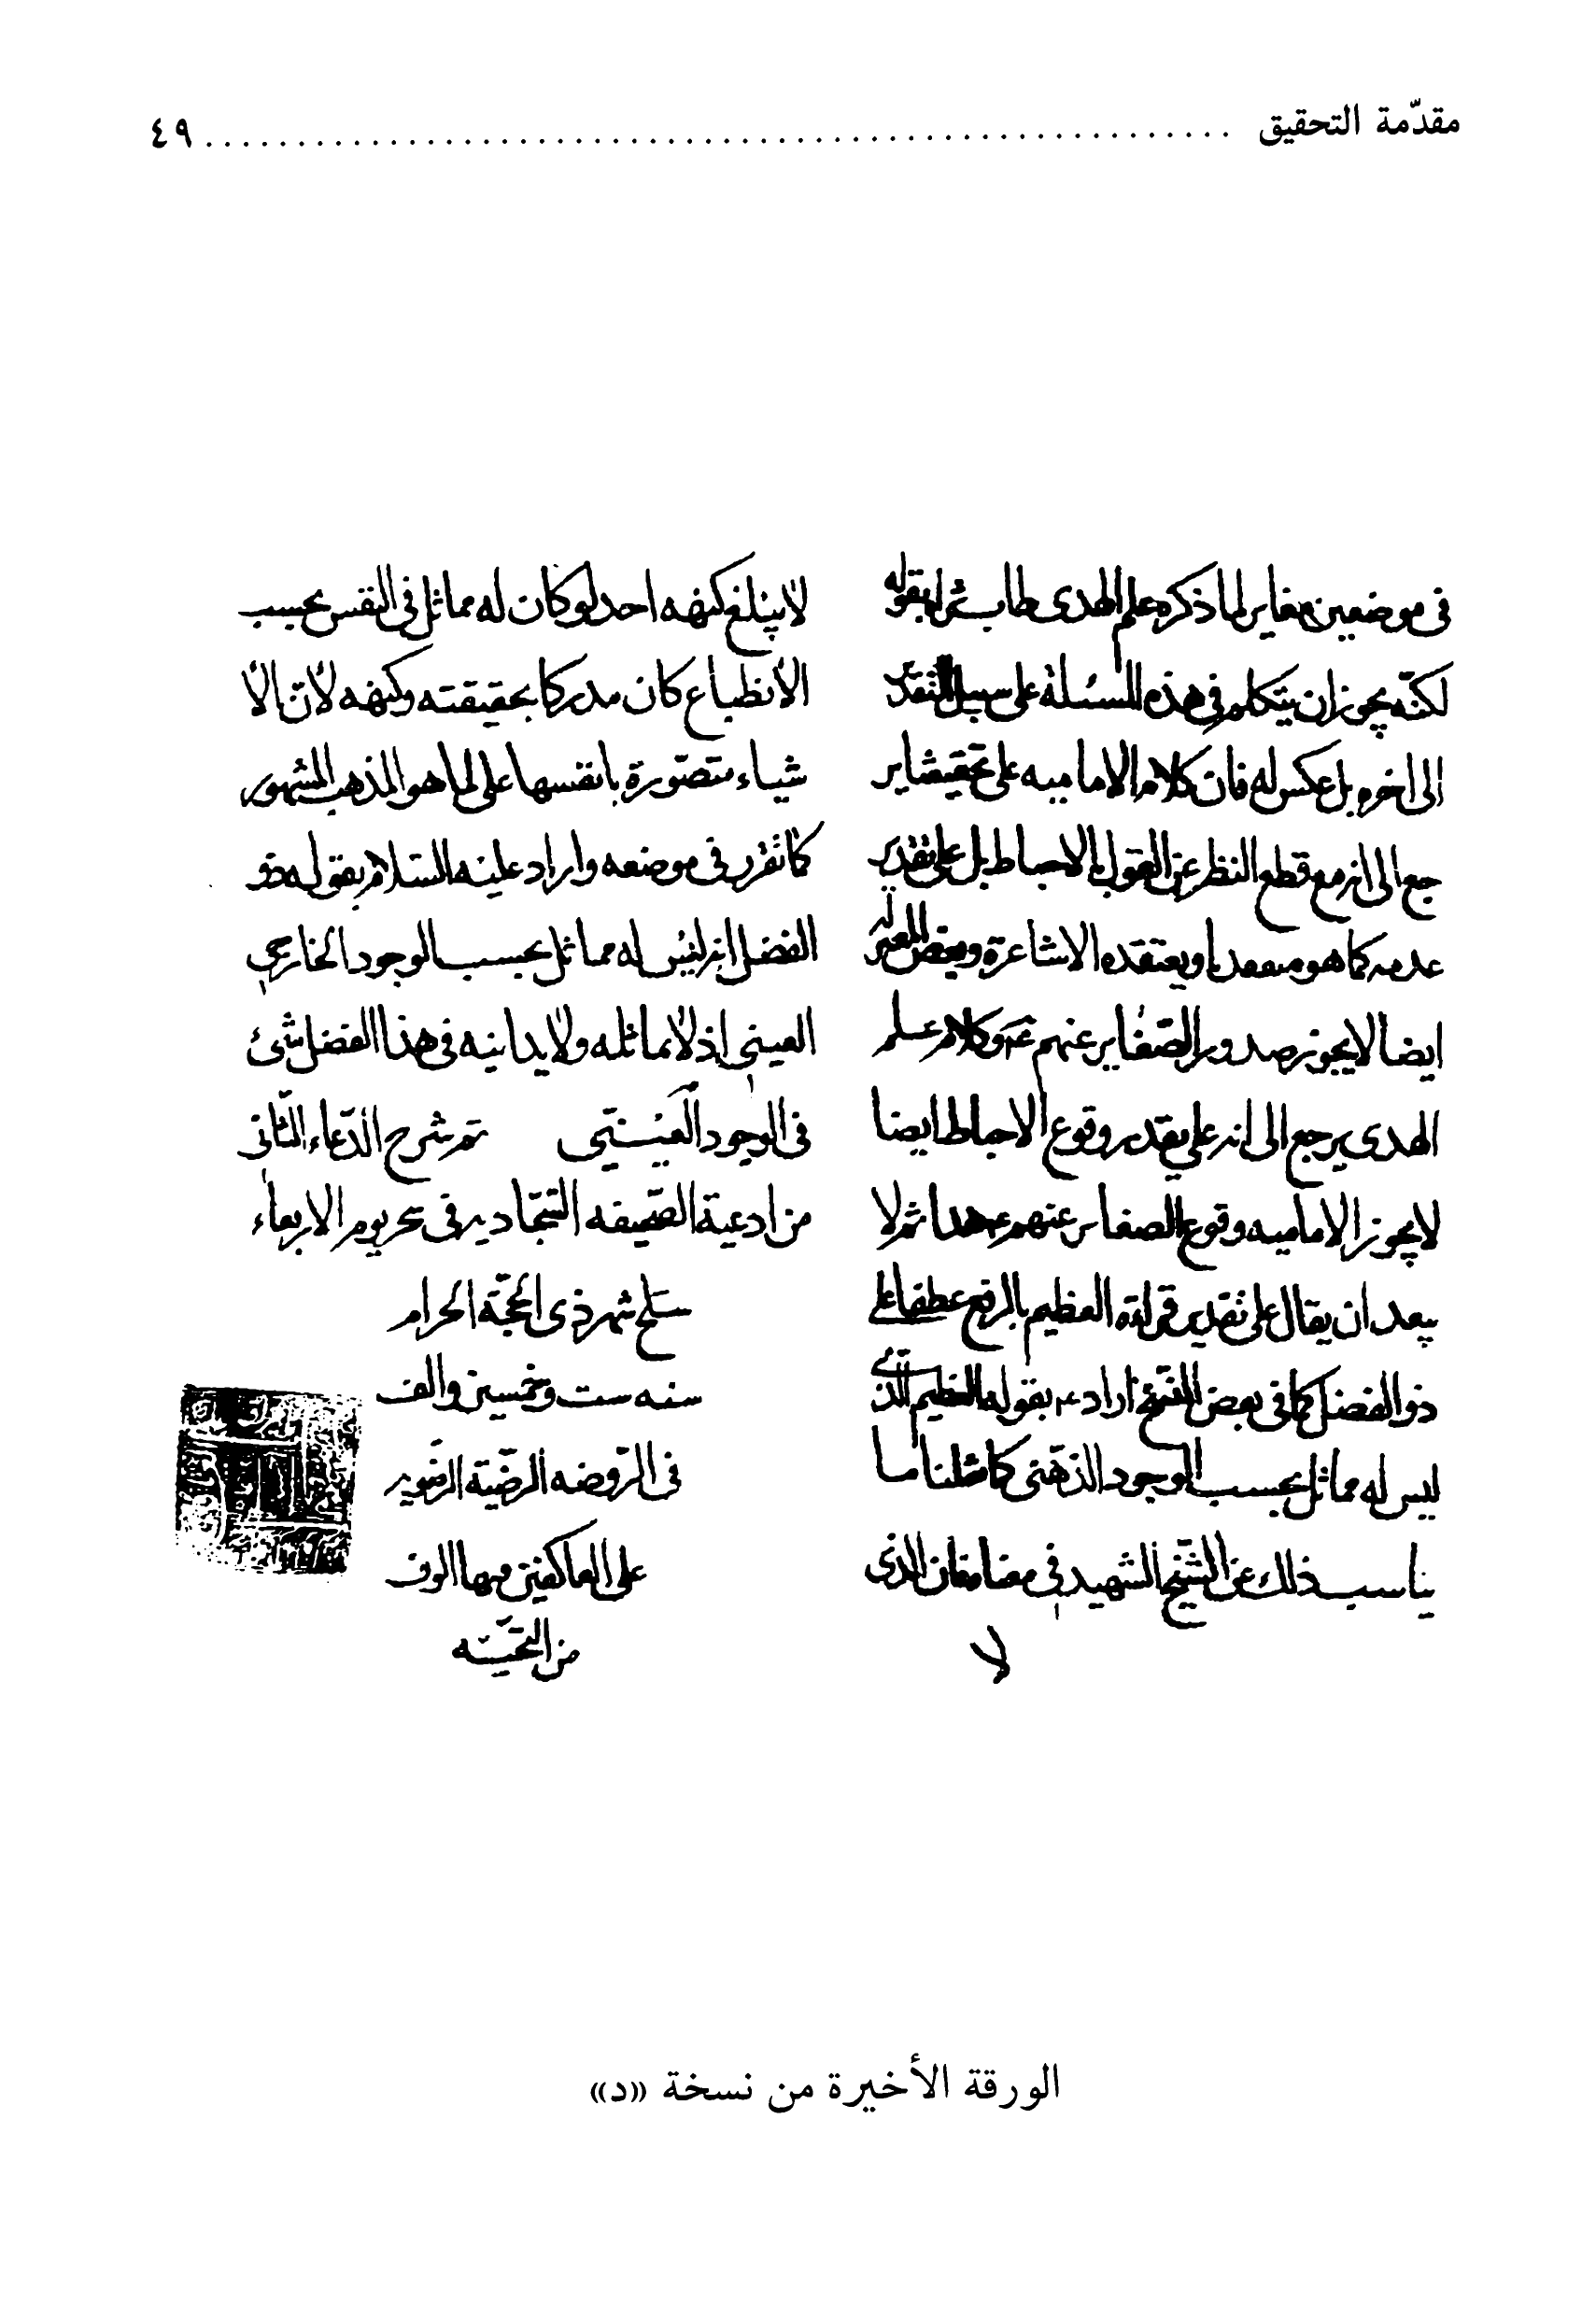 مقدّمة التحقيق ........................................................ ٤٩
فى موضعين مغاير لما ذكره علم الهدى طاب ثراه بقوله
لكنّه يجوز ان يتكلم فى هذه المسئلة على سبيل التقدير
الى اخره بل عكس له فان كلام الاماميه على تحقيق
جع الى انه مع قطع النظر عن القول بالاحباط بل على تقدير
عدمه كما هو او يعتقده الاشاعرة وبعض المعتزله
ايضا لا يجوز صدور الصّغاير عنهم وكلام علم
الهدى يرجع الى انه على تقدير وقوع الاحباط ايضا
لا يجوز الاماميه وقوع الصغاير عنهم هذا ثم لا
يبعد ان يقال على تقدير قراءة العظيم بالرفع عطفا على
ذو الفضل كما فى بعض النسخ اراد بقوله العظيم الذى
ليس له مماثل بحسب الوجود الذهنى كما نقلنا ما
يناسب ذلك عن الشّيخ الشهيد فى الذى
لا
لا يبلغ كنهه احد لو كان له مماثل فى النفس بحسب
الانطباع كان مدركا بحقيقته وكنهه لانّ الا
شياء متصوّرة بانفسها على ما هو المذهب المشهور
كما تقرر فى موضعه واراد عليه السّلام بقوله ذو
الفضل انه ليس له مماثل بحسب الوجود الخارجى
العينى اذ لا يماثله ولا يدانيه فى هذا الفضل شئ
فى الوجود العينى تم شرح الدّعاء الثّانى
من ادعية الصّحيفه السّجّاديه فى يوم الاربعاء
سلخ شهر ذى الحجّة الحرام
سنه ست وخمسين والف
فى الرّوضه الرضيّة الرضويه
على العاكفين فيها الوف
من التحيّه
الورقة الأخيرة من نسخة «د»